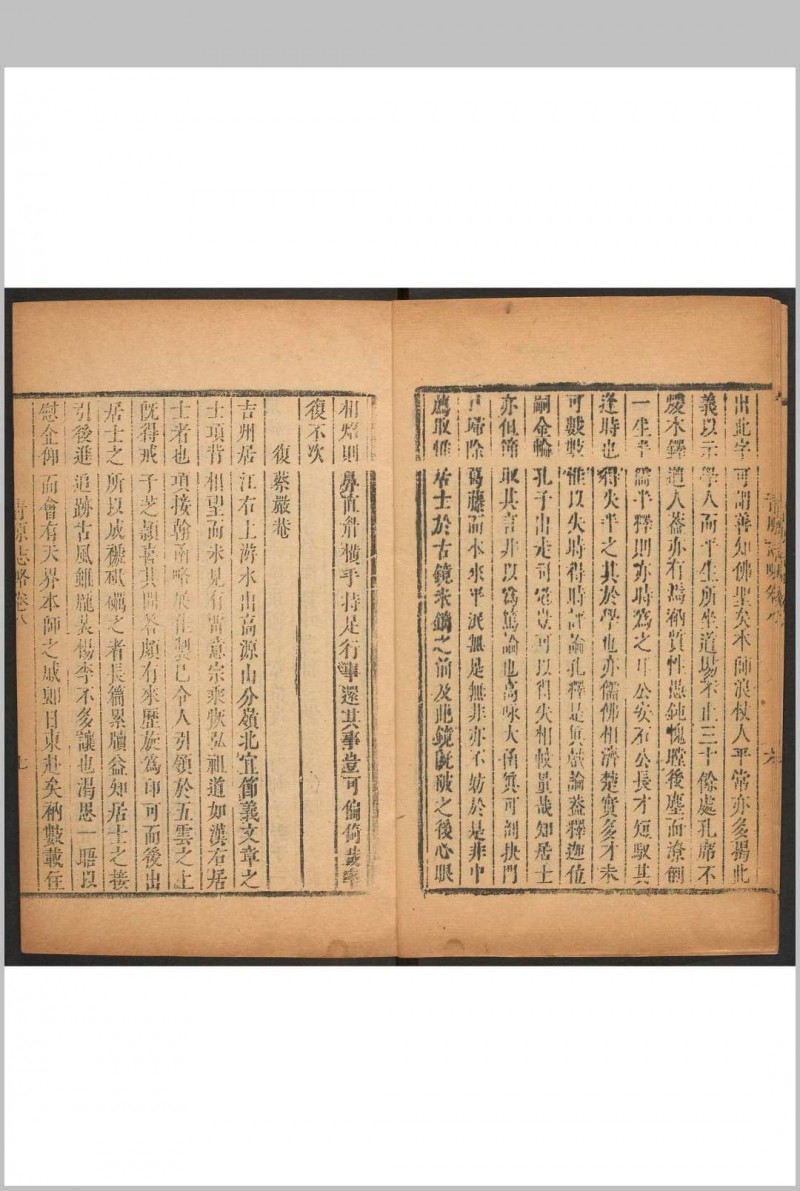 出此字可謂善知佛聖矣本師浪杖人平常亦多揭此
義以示學人而平生所坐道場不止三十餘處孔席不
煖木鐸道人蓋亦有焉衲質性愚鈍愧瞠後塵而潦倒
一生幸儒乎釋則亦時爲之耳公安石公長才短馭其
逢時也得失半之其於學也亦儒佛相濟楚實多才未
可數數惟以失時得時評論孔釋是眞戲論蓋釋迦位
嗣金輪孔子出走司寇豈可以得失相較量哉知居士
亦但節取其言非以爲篤論也高咏大函眞可剖抉門
戶掃除葛藤而本來平泯無是無非亦不妨於是非中
薦取惟居士於古鏡未鑄之前及此鏡旣破之後心眼
青原志略卷八
六
相照則鼻直眉橫手持足行事還其事豈可偏倚哉率
復不次
復蔡嚴菴
吉州居江右上游水出高源山分嶺北宜節義文章之
士項背相望而未見有留意宗乘恢弘祖道如漢石居
士者也項接翰函略展佳製已令人引領於五雲之上
旣得戒子芝頴喜其問答頗有來歷旋爲印可而後出
居士之所以成襪砥礪之者長篇累牘益知居士之接
引後進追跡古風雖龐裴楊李不多讓也渴思一晤以
慰企仰而會有天界本師之戚卽日東赴矣衲數載住
青原志略卷八
七